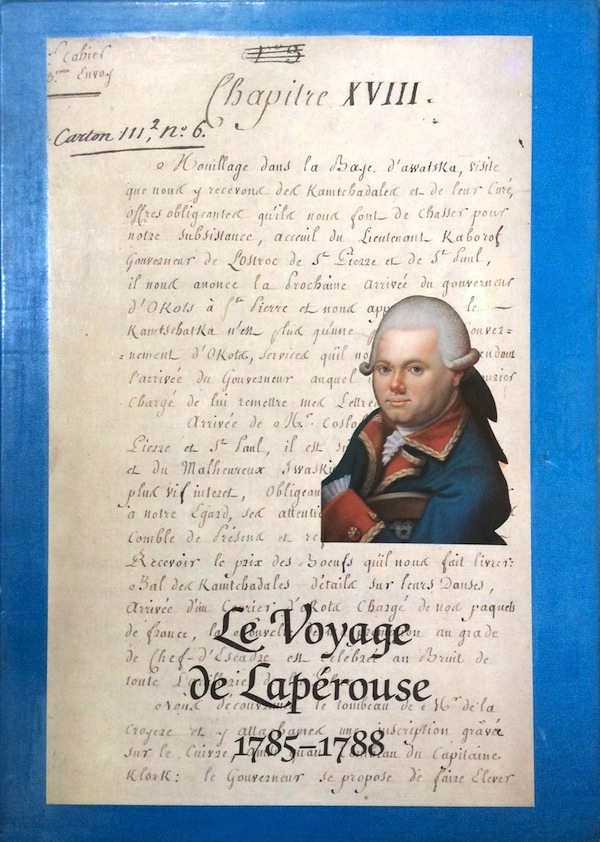 Cahier
3.eme Envoy
Chapitre XVIII.
Carton III², Nº 6.
Mouillage dans la Baye d'awatska, visite
que nous y recevons des Kamtchadales et de leur Curé,
offres obligeantes qu'ils nous font de Chasser pour
notre Subsistance, acceuil du Lieutenant Kaborof
Gouverneur de L'ostroc de St Pierre et de St Paul,
il nous anonce la Prochaine arrivée du gouverneur
d'OKots à St Pierre et nous app le
Kamtschatka n'est plus qu'une ouver=
=nement d'OKots, Services qu'il no endant
l'arrivée du Gouverneur auquel urier
Chargé de lui remettre mes Lettre
Arrivée de Mr. Coslo
Pierre et St Paul, il est
et du Malheureux Iwaski
plus vif interet, Obligean
a notre Egard, ses attenti
Comble de Présens et re
Recevoir le prix des Boeufs qu'il nous fait livrer:
Bal des Kamtchadales détails sur leurs Danses,
Arrivée d'un Courier d'OKots Chargé de nos paquets
de france, la nouvelle promotion au grade
de Chef-d'Escadre est célébrée au Bruit de
toute
Le Voyage
de Lapérouse
1785–1788
Nous decouvrons le tombeau de Mr de la
Croyere et y attachames une inscription gravée
sur le Cuivre ainsi qu'au tombeau du Capitaine
Klerk: le Gouverneur se propose de faire Elever